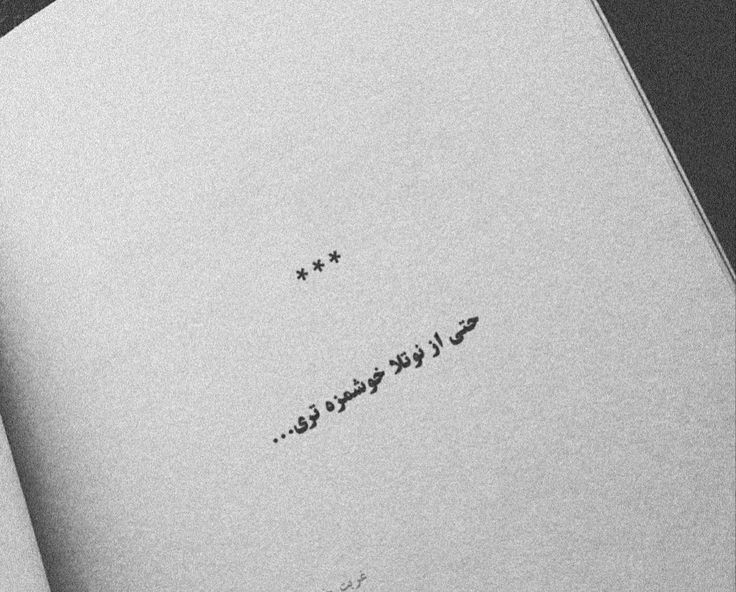 ***
حتی از نوتلا خوشمزه تری...
غربت